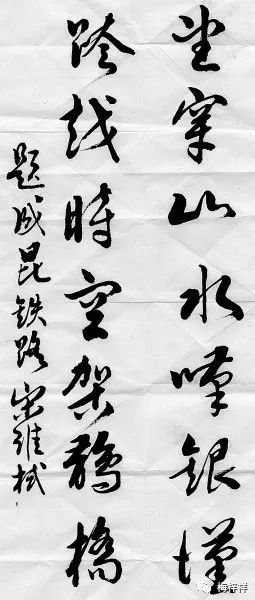 望穿山水嘆銀漢
跨越時空架鵲橋
題成昆铁路 宋維栻
梅梓祥